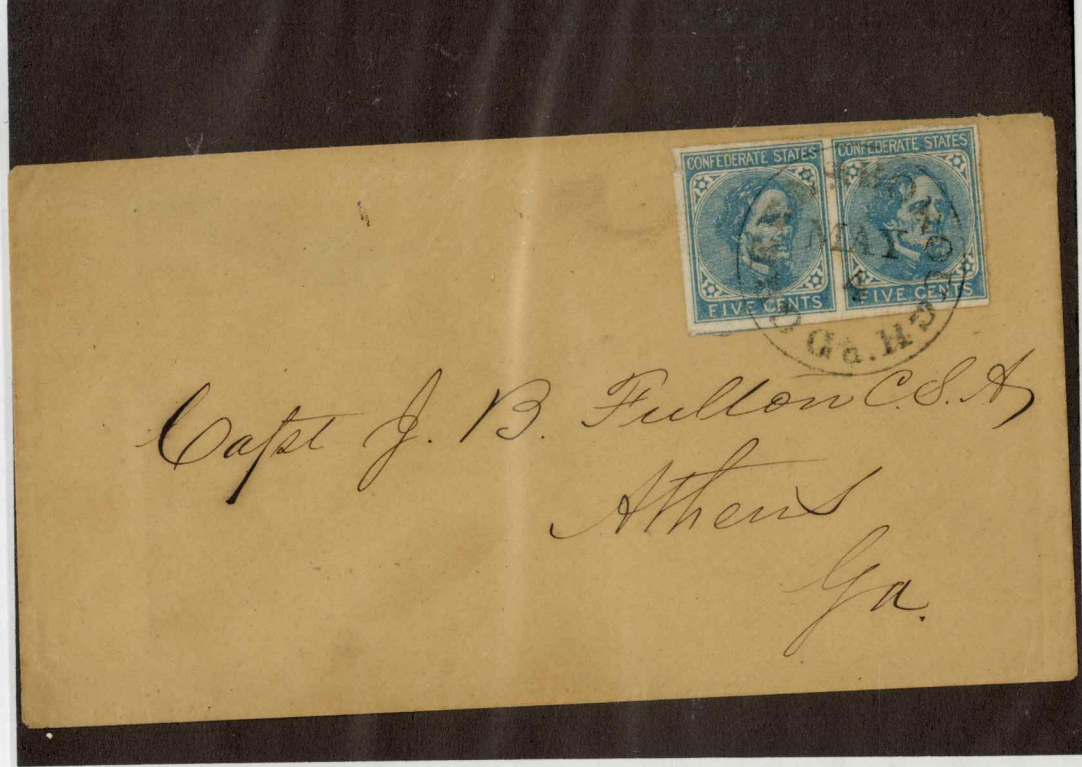 CONFEDERATE STATES
FIVE CENTS
CONFEDERATE STATES
FIVE CENTS
MAY
4
C.H. Ga.
Capt J. B. Fulton C.S.A
Athens
Ga.